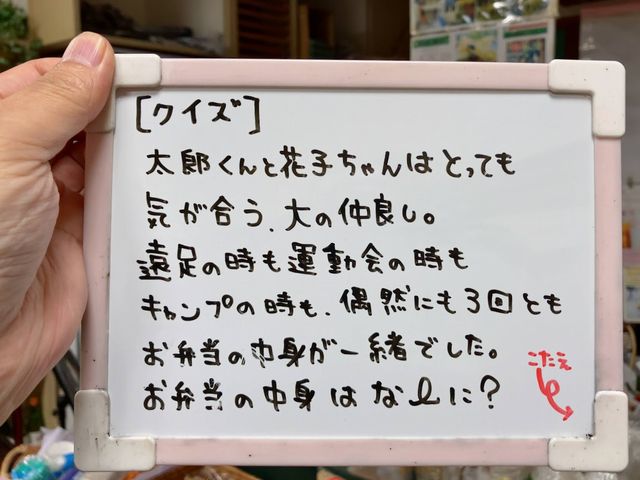 [クイズ]
太郎くんと花子ちゃんはとっても
気が合う、大の仲良し。
遠足の時も運動会の時も
キャンプの時も、偶然にも3回とも
お弁当の中身が一緒でした。
お弁当の中身はなぁに?
こたえ